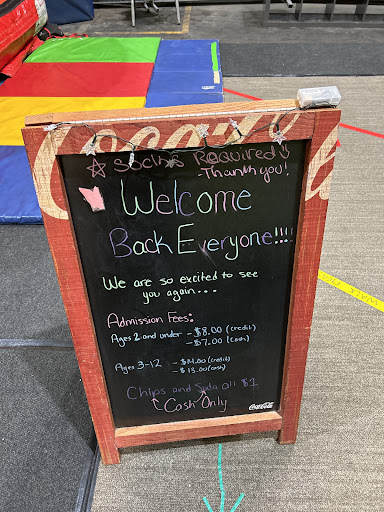 Coca-Cola
☆ Socks Required!
-Thank you!
Welcome
Back Everyone!!!
We are so excited to see
you again...
Admission Fees:
Ages 2 and under - $8.00 (credit)
- $7.00 (cash)
Ages 3-12 - $14.00 (credit)
- $13.00 (cash)
Chips and Soda all $1
Cash Only
Coca-Cola
WALK